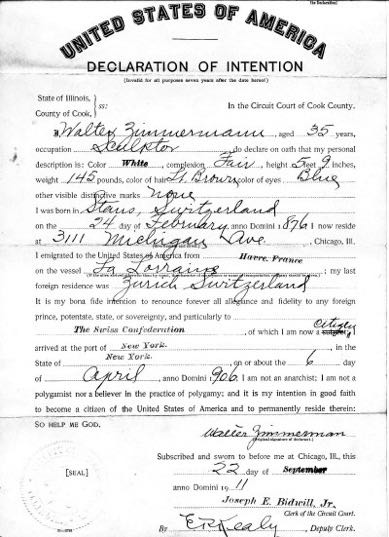 the Declaration)
UNITED STATES OF AMERICA
DECLARATION OF INTENTION
(Invalid for all purposes seven years after the date hereof)
State of Illinois,
County of Cook,
ss:
In the Circuit Court of Cook County.
I, Walter Zimmermann, aged 35 years,
occupation Sculptor, do declare on oath that my personal
description is: Color White, complexion Fair, height 5 feet 9 inches,
weight 145 pounds, color of hair Lt. Brown color of eyes Blue
other visible distinctive marks None
I was born in Stans, Switzerland
on the 24 day of February, anno Domini 1876 I now reside
at 3111 Michigan Ave., Chicago, Ill.
I emigrated to the United States of America from Havre, France
on the vessel La Lorraine; my last
foreign residence was Zurich Switzerland
It is my bona fide intention to renounce forever all allegiance and fidelity to any foreign
prince, potentate, state, or sovereignty, and particularly to
The Swiss Confederation, of which I am now a citizen
arrived at the port of New York, in the
State of New York, on or about the 6 day
of April, anno Domini 1906. I am not an anarchist; I am not a
polygamist nor a believer in the practice of polygamy; and it is my intention in good faith
to become a citizen of the United States of America and to permanently reside therein:
SO HELP ME GOD.
Walter Zimmerman
(Original signature of declarant.)
Subscribed and sworn to before me at Chicago, Ill., this
[SEAL]
22 day of September
anno Domini 1911
Joseph E. Bidwill, Jr.
Clerk of the Circuit Court.
By E R Kealy, Deputy Clerk.